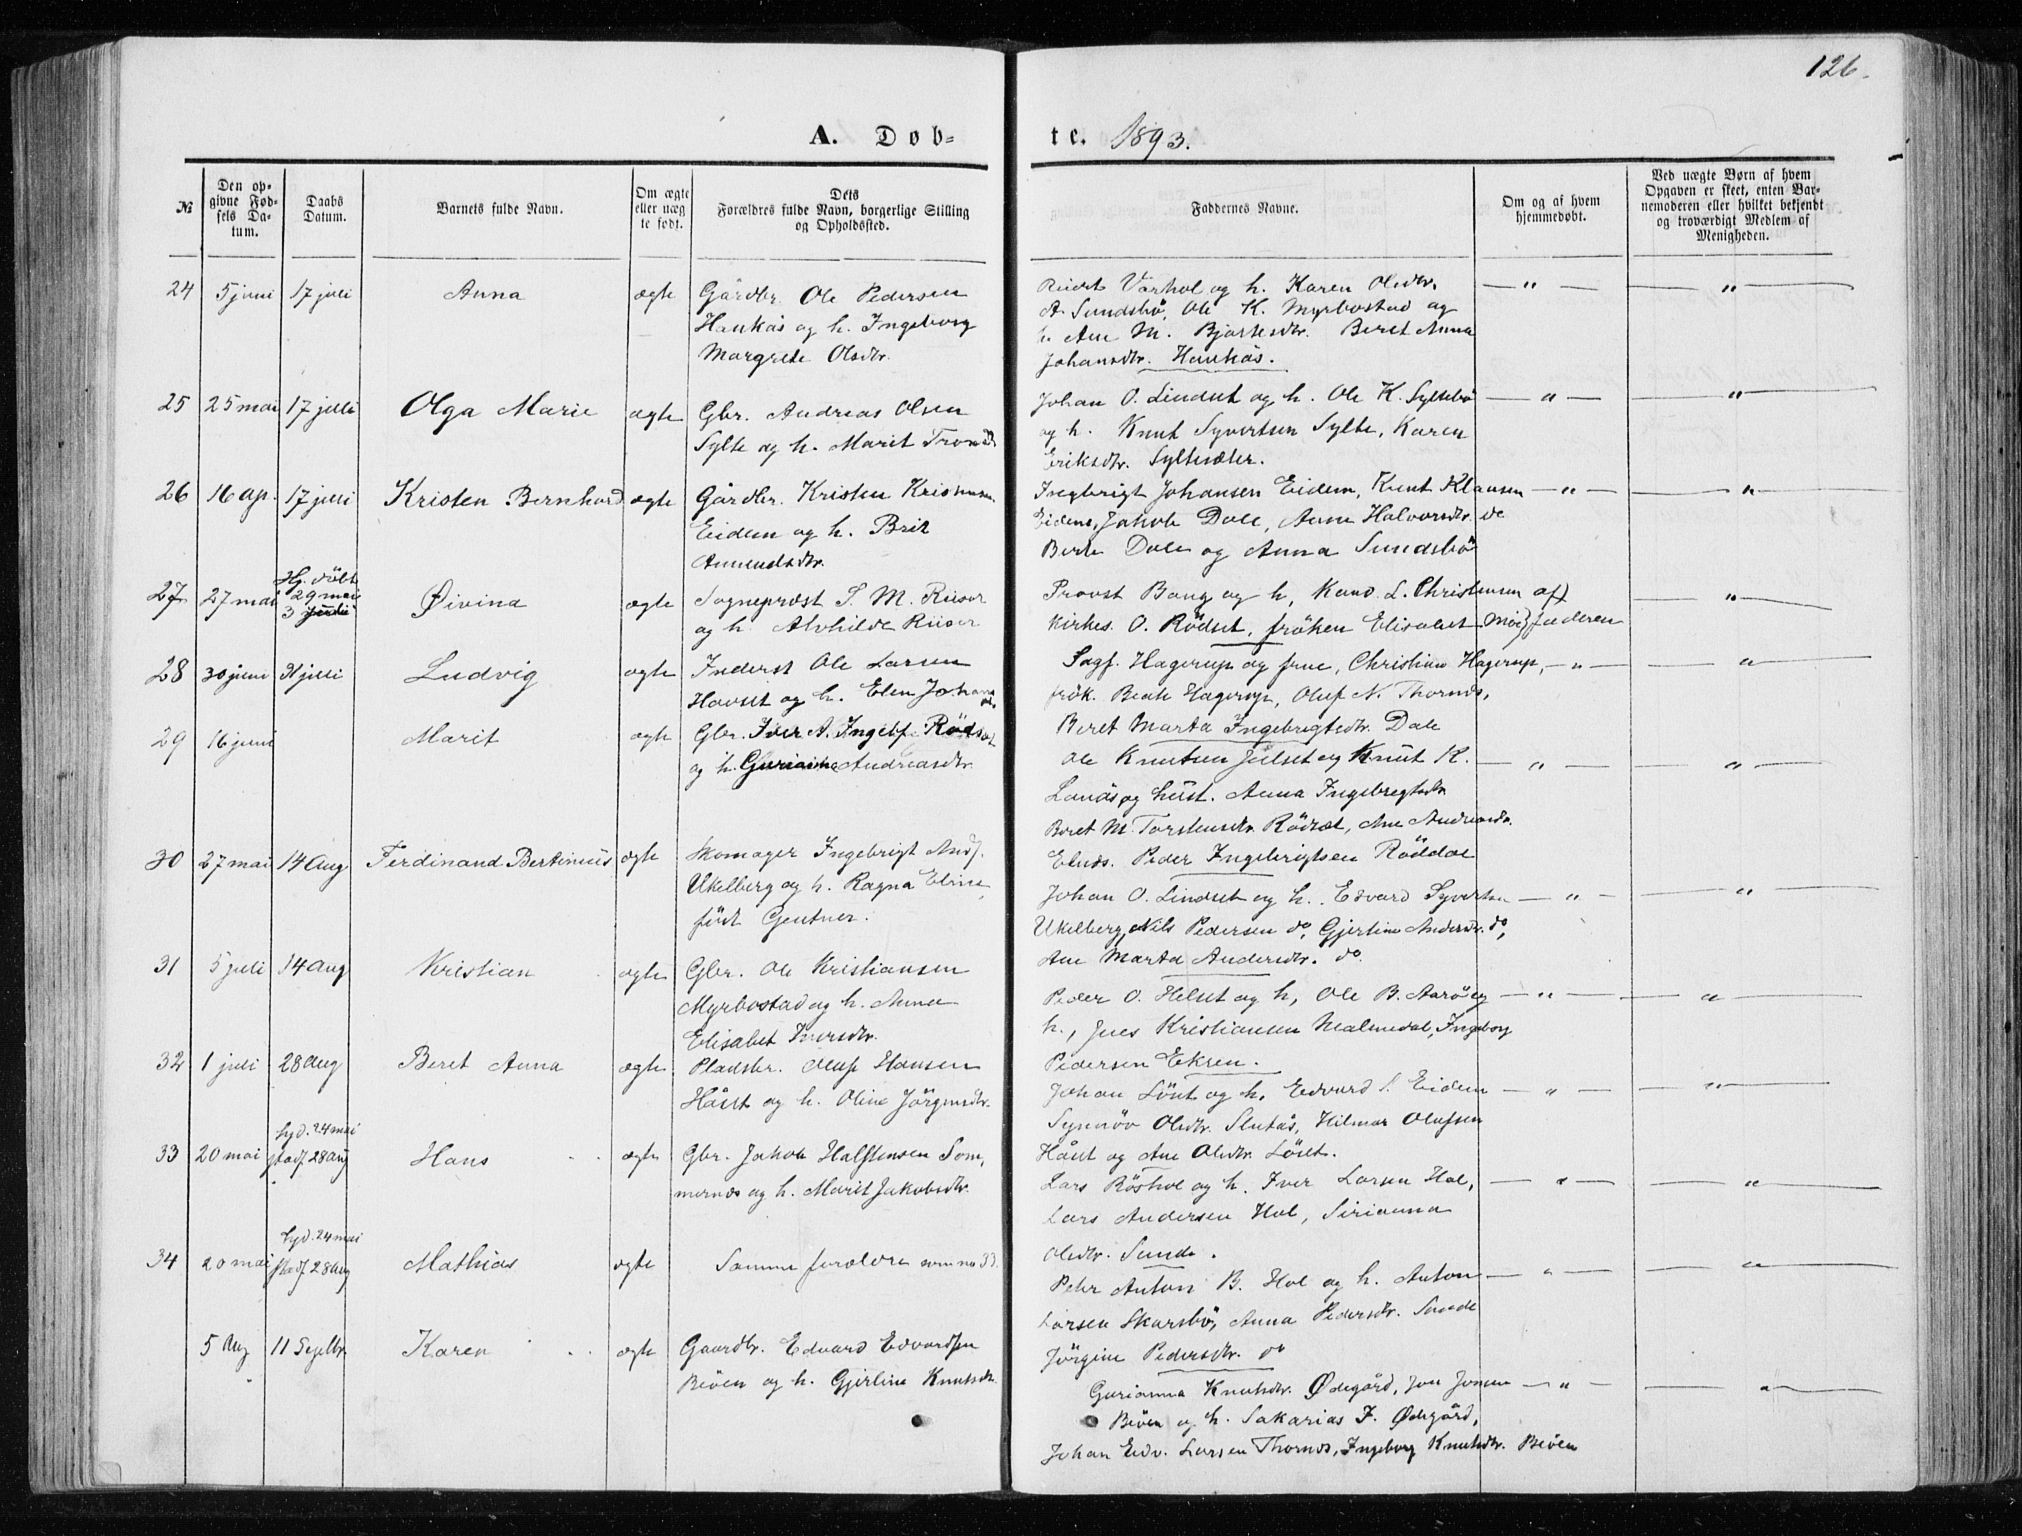 126.
A. Døb-
te. 1893.
№
Den op-
givne Fød-
sels Da-
tum.
Daabs
Datum.
Barnets fulde Navn.
Om ægte
eller uæg
te født.
Dets
Forældres fulde Navn, borgerlige Stilling
og Opholdssted.
Faddernes Navne.
Om og af hvem
hjemmedøbt.
Ved uægte Børn af hvem
Opgaven er skeet, enten Bar-
nemoderen eller hvilket bekjendt
og troværdigt Medlem af
Menigheden.
24 5 juni 17 juli Anna ægte Gårdbr. Ole Pedersen
Haukås og h. Ingeborg
Margrete Olsdtr.
Varhol og h. Karen Olsdtr.
A. Sundsbö, Ole K. Myrbostad og
h. Ane M. Bjartesdtr. Beret Anna
Johansdtr. Haukås. — " — — " —
25 25 mai 17 juli Olga Marie ægte Gbr. Andreas Olsen
Sylte og h. Marit
Johan O. Lindset og h. Ole K. Syltebö
og h. Knut Syvertsen Sylte, Karen
Eriksdtr. Syltesæter. — " — — " —
26 16 ap. 17 juli Kristen Bernhard ægte Gårdbr. Kristen
Eidem og h. Brit
Amundsdtr.
Ingebrigt Johansen Eidem, Knut Klausen
Eidem, Jakob Dale, Anne Halvorsdtr. do
Berte Dale og Anna Sundsbö — " — — " —
27 27 mai Hj. döbt
29 mai
3 Øivind ægte Sogneprest S. M. Riiser
og h. Alvhilde Riiser
Provst Bang og h, Kand. L. Christensen af
Kirkes. O. Rödset, fröken Elisabet Faderen — " —
28 30 juni juli Ludvig ægte Inderst Ole Larsen
Havset og h. Elen
Sagf. Hagerup og frue, Christian Hagerup,
frök. Beate Hagerup, Oluf N. Thornæs,
Beret Marta Ingebrigtsdtr. Dale — " — — " —
29 16 juni Marit ægte Gbr. Iver A.
og h. Andreasdtr.
Ole Knutsen Julset og Knut K.
og hust. Anna Ingebregtsdtr.
Beret M. Torstensdtr. Rödset, Ane
Elnæs. Peder Ingebrigtsen — " — — " —
30 27 mai 14 Aug Ferdinand Bertinius ægte Skomager Ingebrigt
Ukelberg og h. Ragna Eline,
född Gentner.
Johan O. Lindset og h. Edvard
Ukelberg, Nils Pedersen do, Gjertine Andersdtr. do,
Ane Marta Andersdtr. do. — " — — " —
31 5 juli 14 Aug Kristian ægte Gbr. Ole Kristiansen
Myrbostad og h. Anne
Elisabet Iversdtr.
Peder O. Helset og h, Ole B. Aaröe og
h., Jens Kristiansen Malmedal, Ingeborg
Pedersen — " — — " —
32 1 juli 28 Aug Beret Anna ægte Pladsbr. Oluf Hansen
Håset og h. Oline Jörgensdtr.
Johan Löset og h. Edvard S. Eidem
Synnöv Olsdtr. Hilmar Olufsen
Håset og Ane Olsdtr. Löset. — " — — " —
33 20 mai 24 mai
28 Aug Hans ægte Gbr. Jakob Halstensen Som,
mernæs og h. Marit Jakobsdtr.
Lars Röshol og h. Iver Larsen Hol,
Lars Andersen Hol, Sirianna
Olsdtr. Sunde. — " — — " —
34 20 mai 24 mai
28 Aug Mathias ægte Samme foreldre som no 33.
Peter Anton B. Hol og h. Anton
Larsen Skarsbö, Anna Pedersdtr. Sunde
Jörgine Pedersdtr. do — " — — " —
5 Aug 11 Septbr. Karen ægte Gaardbr. Edvard Edvardsen
Beöen og h. Gjerline Knutsdtr.
Gurianna Knutsdtr. Ødegård, Jon Jonsen
Beöen og h. Sakarias I. Ødegård,
Johan Edv. Larsen Thornæs, Ingeborg Knutsdtr. Beöen — " — — " —